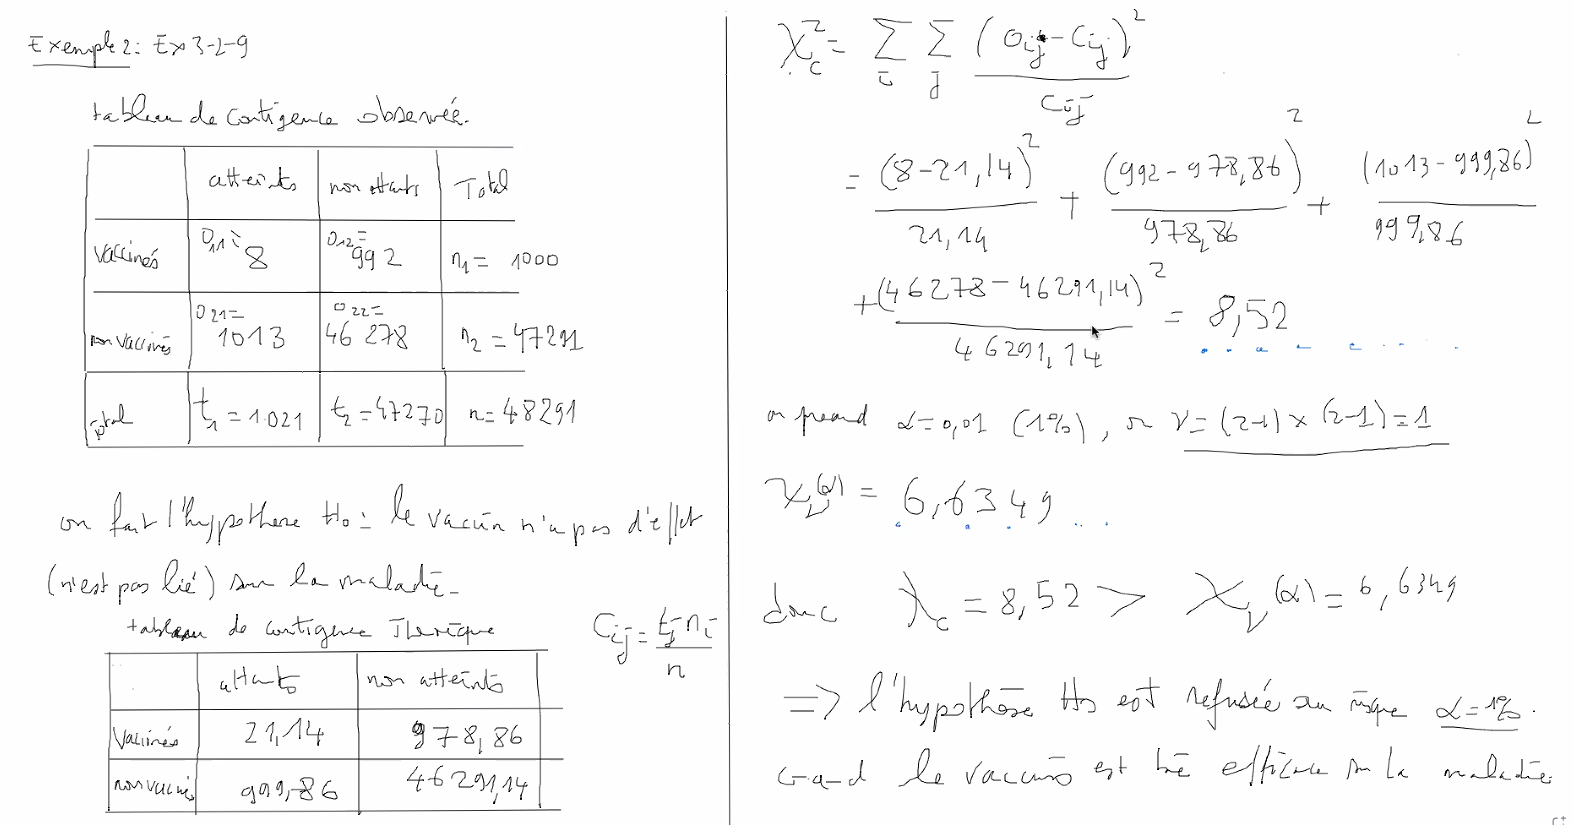 Exemple 2: Ex 3-2-9
tableau de contigence observée.
atteints non atteints Total
Vaccinés O11= 8 O12= 992 n1 = 1000
non vaccinés O21= 1013 O22= 46 278 n2 = 47291
total t1 = 1.021 t2 = 47270 n = 48291
on fait l'hypothèse H0 : le vaccin n'a pas d'effet
(n'est pas lié) sur la maladie.
tableau de contigence Théorique
Cij = tj ni / n
atteints non atteints
Vaccinés 21,14 978,86
non vaccinés 999,86 46291,14
χ²c = Σi Σj (Oij - Cij)² / Cij
= (8-21,14)² / 21,14 + (992-978,86)² / 978,86 + (1013-999,86)² / 999,86
+ (46278-46291,14)² / 46291,14 = 8,52
on prend α=0,01 (1%), on ν=(2-1)×(2-1)=1
χν(α) = 6,6349
donc χc = 8,52 > χν(α) = 6,6349
=> l'hypothèse H0 est refusée au risque α=1%.
c-a-d le vaccin est liè efficace sur la maladie